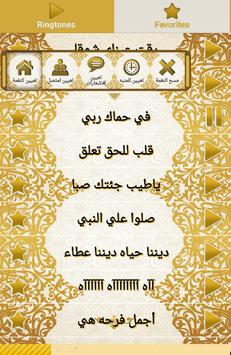 Ringtones
Favorites
رقت عيناي شوقا
تعيين كنغمة
تعيين لمتصل
تعيين للاشعارات
تعيين للمنبه
مسح النغمة
في حماك ربي
قلب للحق تعلق
ياطيب جئتك صبا
صلوا علي النبي
ديننا حياه ديننا عطاء
أجمل فرحه هي